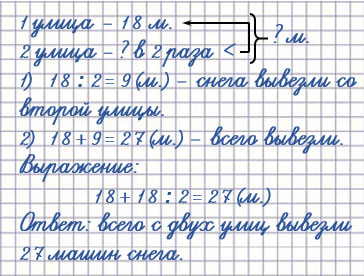 1 улица – 18 м.
2 улица – ? в 2 раза <
? м.
1) 18 : 2 = 9 (м.) – снега вывезли со
второй улицы.
2) 18 + 9 = 27 (м.) – всего вывезли.
Выражение:
18 + 18 : 2 = 27 (м.)
Ответ: всего с двух улиц вывезли
27 машин снега.